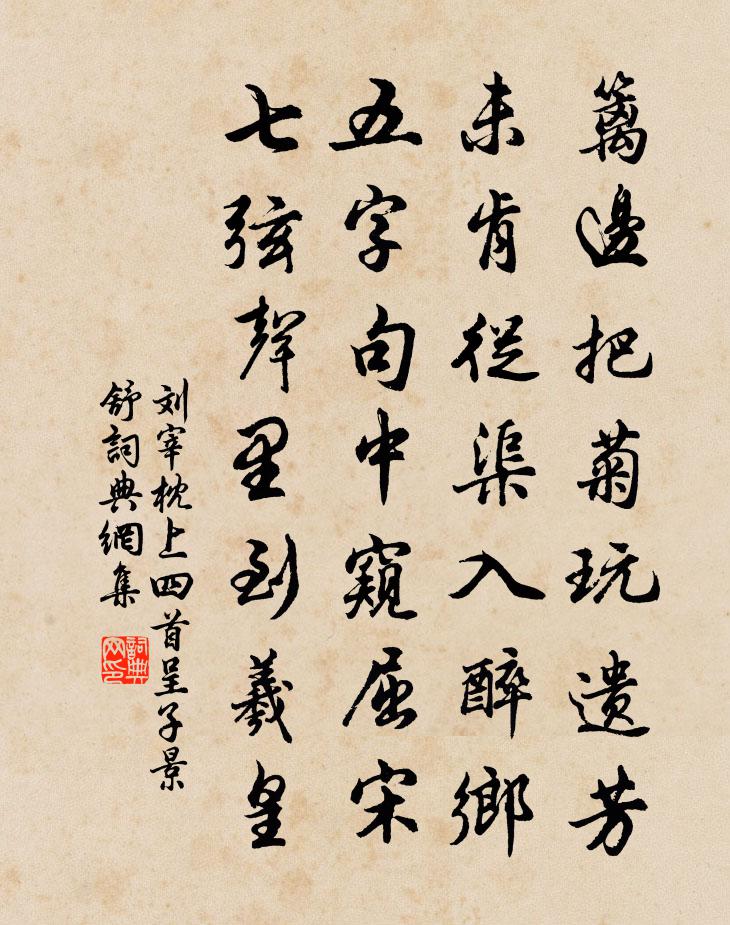 籬邊把菊玩遺芳
未肯從渠入醉鄉
五字句中窺屈宋
七弦聲里到羲皇
刘宰枕上四首呈子景
舒詞典網集
詞典网印